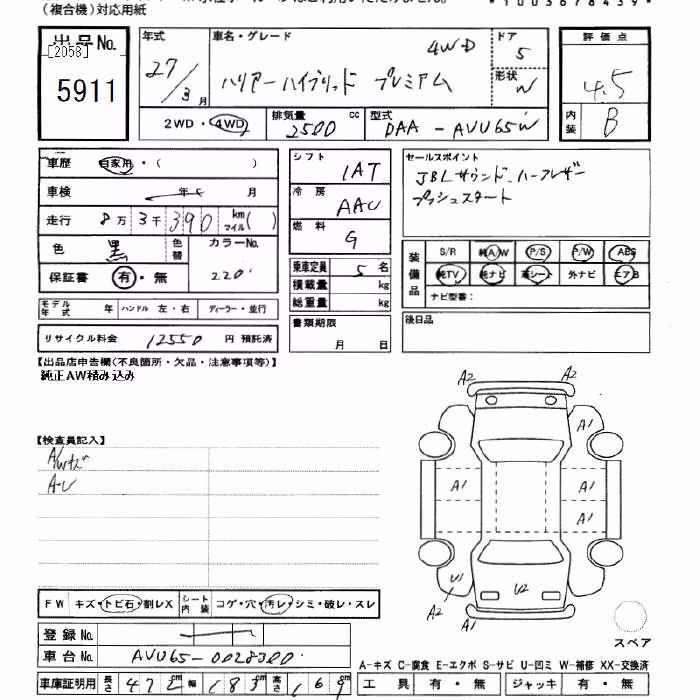 (複合機)対応用紙
出品No.
[2058]
5911
年式 27/3月
車名・グレード 4WD
ハリアーハイブリッド プレミアム
ドア 5
形状 W
評価点 4.5
内装 B
2WD・4WD
排気量 2500 cc
型式 DAA-AVU65W
車歴 自家用・( )
車検 年 月
走行 8万3千390 km マイル( )
色 黒 色替 カラーNo. 220
保証書 有・無
モデル年式 年 ハンドル 左・右 ディーラー・並行
リサイクル料金 12550 円 預託済
シフト 1AT
冷房 AAC
燃料 G
乗車定員 5 名
積載量 kg
総重量 kg
書類期限
月 日
セールスポイント
JBLサウンド、ハーフレザー
プッシュスタート
装備品 S/R 純A/W P/S P/W ABS
純TV 純ナビ 革シート 外ナビ エアB
ナビ型番:
後日品
【出品店申告欄(不良箇所・欠品・注意事項等)】
純正AW積み込み
【検査員記入】
A/Wキズ
A・U
A2 A2
A1
A1 A1
A1
U1 U2
A2 A1
A2
スペア
FW キズ・トビ石・割レX シート内装 コゲ・穴・汚レ・シミ・破レ・スレ
登録No.
車台No. AVU65-0028300
車庫証明用 長さ 472cm 幅 183cm 高さ 169cm
A-キズ C-腐食 E-エクボ S-サビ U-凹ミ W-補修 XX-交換済
工具 有・無 ジャッキ 有・無